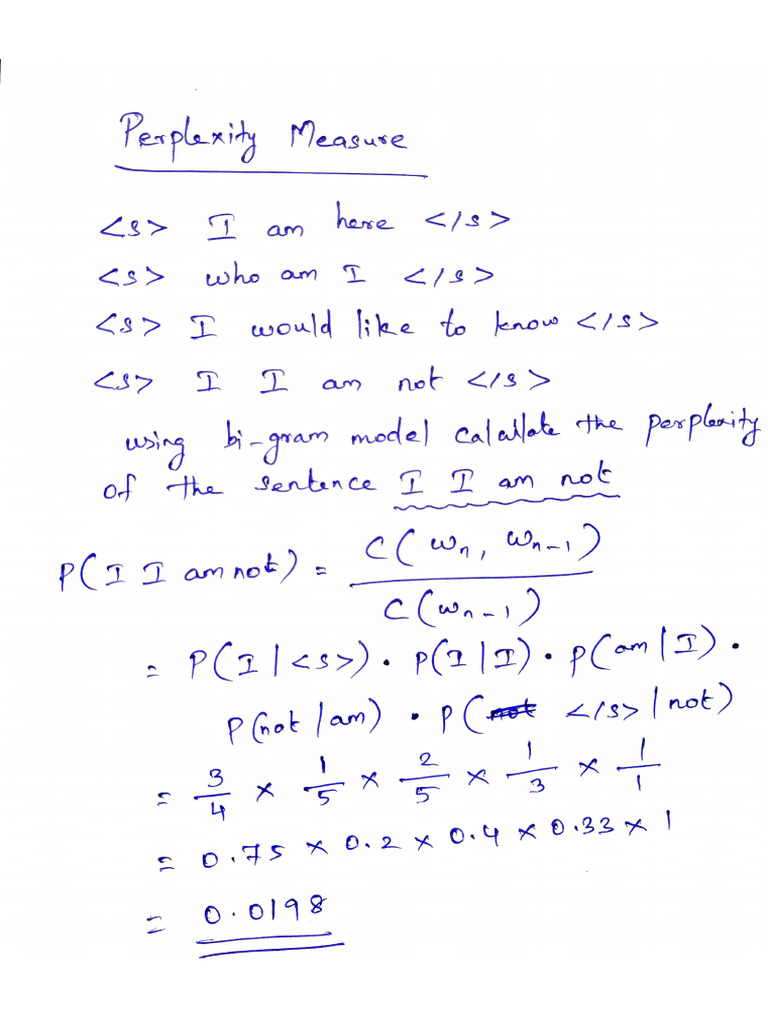 Perplexity Measure
<s> I am here </s>
<s> who am I </s>
<s> I would like to know </s>
<s> I I am not </s>
using bi-gram model calallate the perplexity
of the sentence I I am not
P(I I am not) = C(wn, wn-1)
C(wn-1)
= P(I|<s>) . P(I|I) . P(am|I) .
P(not|am) . P( </s>|not)
= 3/4 x 1/5 x 2/5 x 1/3 x 1/1
= 0.75 x 0.2 x 0.4 x 0.33 x 1
= 0.0198